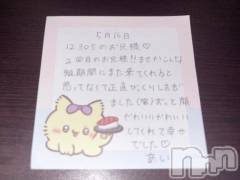 5月16日
12:30〜のお兄様♡
2回目のお兄様!!まさかこんな
短期間にまた来てくれると
思ってなくて正直びっくりしちゃい
ました(笑)ずっと顔
かわいいかわいい
してくれて幸せ
でした♡
あい